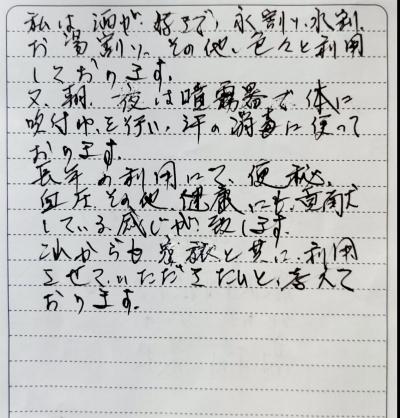 私は酒が好きで、氷割り、水割、
お湯割り、その他、色々と利用
しております。
又、朝、夜は噴霧器で体に
吹付けを行い、汗の消毒に使って
おります。
長年の利用にて、便秘、
血圧その他、健康にも貢献
している感じが致します。
これからも家族と共に利用
させていただきたいと、考えて
おります。